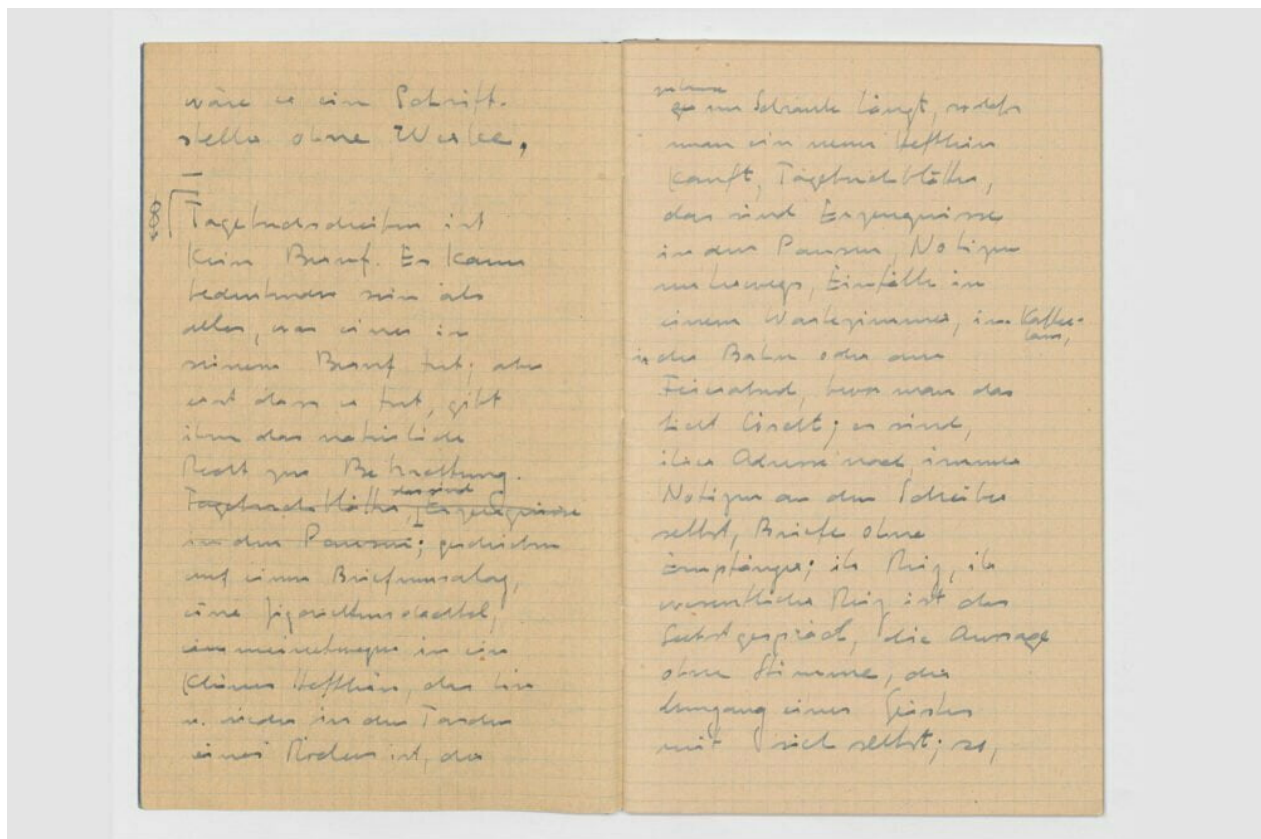 wäre es ein Schrift-
steller ohne Werke,
Tagebuchschreiben ist
kein Beruf. Es kann
bedeutender sein als
alles, was einer in
seinem Beruf tut; aber
erst dass er tut, gibt
ihm das natürliche
Recht zur Betrachtung.
Tagebuchblätter, das sind Erzeugnisse
in den Pausen; geschrieben
auf einen Briefumschlag,
eine Zigarettenschachtel,
meinetwegen in ein
kleines Heftlein, das hin
u. wieder in den Taschen
eines Rockes ist, der
im Schranke hängt, sodass
man ein neues Heftlein
kauft, Tagebuchblätter,
das sind Erzeugnisse
in den Pausen, Notizen
unterwegs, Einfälle in
einem Wartezimmer, im Kaffee-
haus,
in der Bahn oder am
Feierabend, bevor man das
Licht löscht; es sind,
ihrer Adresse nach, immer
Notizen an den Schreiber
selbst, Briefe ohne
Empfänger; ihr Reiz, ihr
wesentlicher Reiz ist das
Selbstgespräch, die Aussage
ohne Stimme, der
Umgang eines Geistes
mit sich selbst; so,